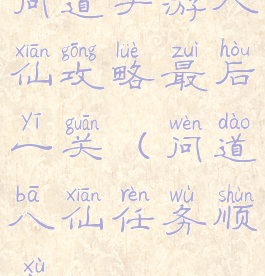 问道手游八
xiān gōng lüè zuì hòu
仙攻略最后
yī guān wèn dào
一关（问道
bā xiān rèn wù shùn
八仙任务顺
xù